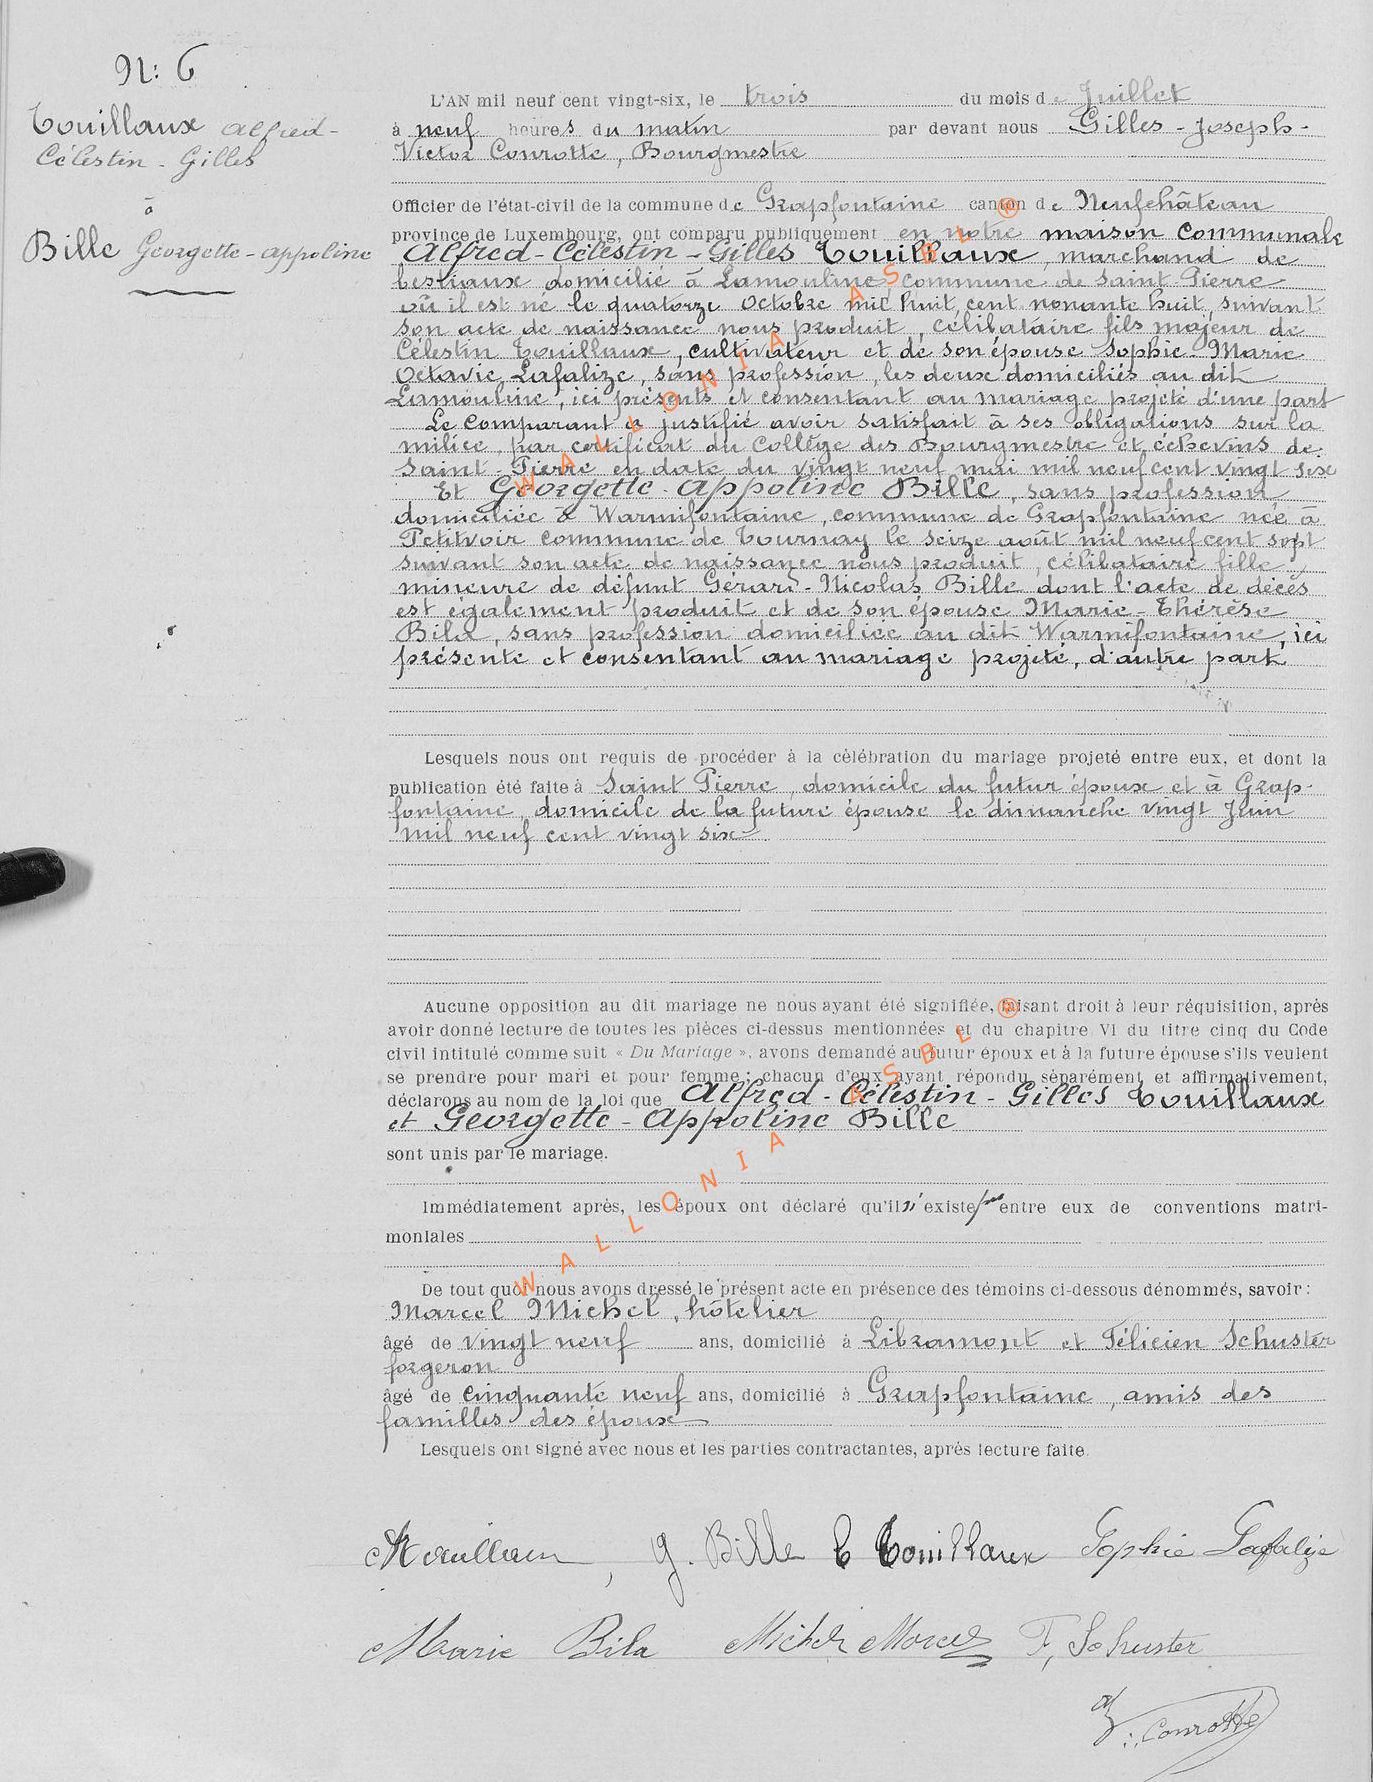 N: 6
Touillaux Alfred-
Célestin - Gilles
à
Bille Georgette - Appoline
L'AN mil neuf cent vingt-six, le trois du mois de Juillet
à neuf heures du matin par devant nous Gilles - Joseph -
Victor Conrotte, Bourgmestre
Officier de l'état-civil de la commune de Grapfontaine canton de Neufchâteau
province de Luxembourg, ont comparu publiquement en notre maison Communale
Alfred - Célestin - Gilles Touillaux, marchand de
bestiaux domicilié à Lamouline commune de Saint Pierre
où il est né le quatorze Octobre mil huit cent nonante huit, suivant
son acte de naissance nous produit, célibataire fils majeur de
Célestin Touillaux, cultivateur et de son épouse Sophie - Marie
Octavie Lafalize, sans profession, les deux domiciliés au dit
Lamouline, ici présents et consentant au mariage projeté d'une part
Le comparant a justifié avoir satisfait à ses obligations sur la
milice par certificat du Collège des Bourgmestre et échevins de
Saint - Pierre en date du vingt neuf mai mil neuf cent vingt six
Et Georgette - Appoline Bille, sans profession
domiciliée à Warmifontaine, commune de Grapfontaine née à
Petitvoir commune de Tournay le seize août mil neuf cent sept
suivant son acte de naissance nous produit, célibataire fille
mineure de défunt Gérard - Nicolas Bille dont l'acte de décès
est également produit et de son épouse Marie - Thérèse
Bila, sans profession domiciliée au dit Warmifontaine, ici
présente et consentant au mariage projeté, d'autre part
Lesquels nous ont requis de procéder à la célébration du mariage projeté entre eux, et dont la
publication été faite à Saint Pierre, domicile du futur époux et à Grap-
fontaine domicile de la future épouse le dimanche vingt Juin
mil neuf cent vingt six
Aucune opposition au dit mariage ne nous ayant été signifiée, faisant droit à leur réquisition, après
avoir donné lecture de toutes les pièces ci-dessus mentionnées et du chapitre VI du titre cinq du Code
civil intitulé comme suit « Du Mariage », avons demandé au futur époux et à la future épouse s'ils veulent
se prendre pour mari et pour femme ; chacun d'eux ayant répondu séparément et affirmativement,
déclarons au nom de la loi que Alfred - Célestin - Gilles Touillaux
et Georgette - Appoline Bille
sont unis par le mariage.
Immédiatement après, les époux ont déclaré qu'il n'existe pas entre eux de conventions matri-
moniales
De tout quoi nous avons dressé le présent acte en présence des témoins ci-dessous dénommés, savoir :
Marcel Michel, hôtelier
âgé de vingt neuf ans, domicilié à Libramont et Félicien Schuster
forgeron
âgé de cinquante neuf ans, domicilié à Grapfontaine, amis des
familles des époux
Lesquels ont signé avec nous et les parties contractantes, après lecture faite.
A Touillaux, G. Bille C Touillaux Sophie Lafalize
Marie Bila Michel Marcel F. Schuster
V. Conrotte
WALLONIA ASBL ®
WALLONIA ASBL ®